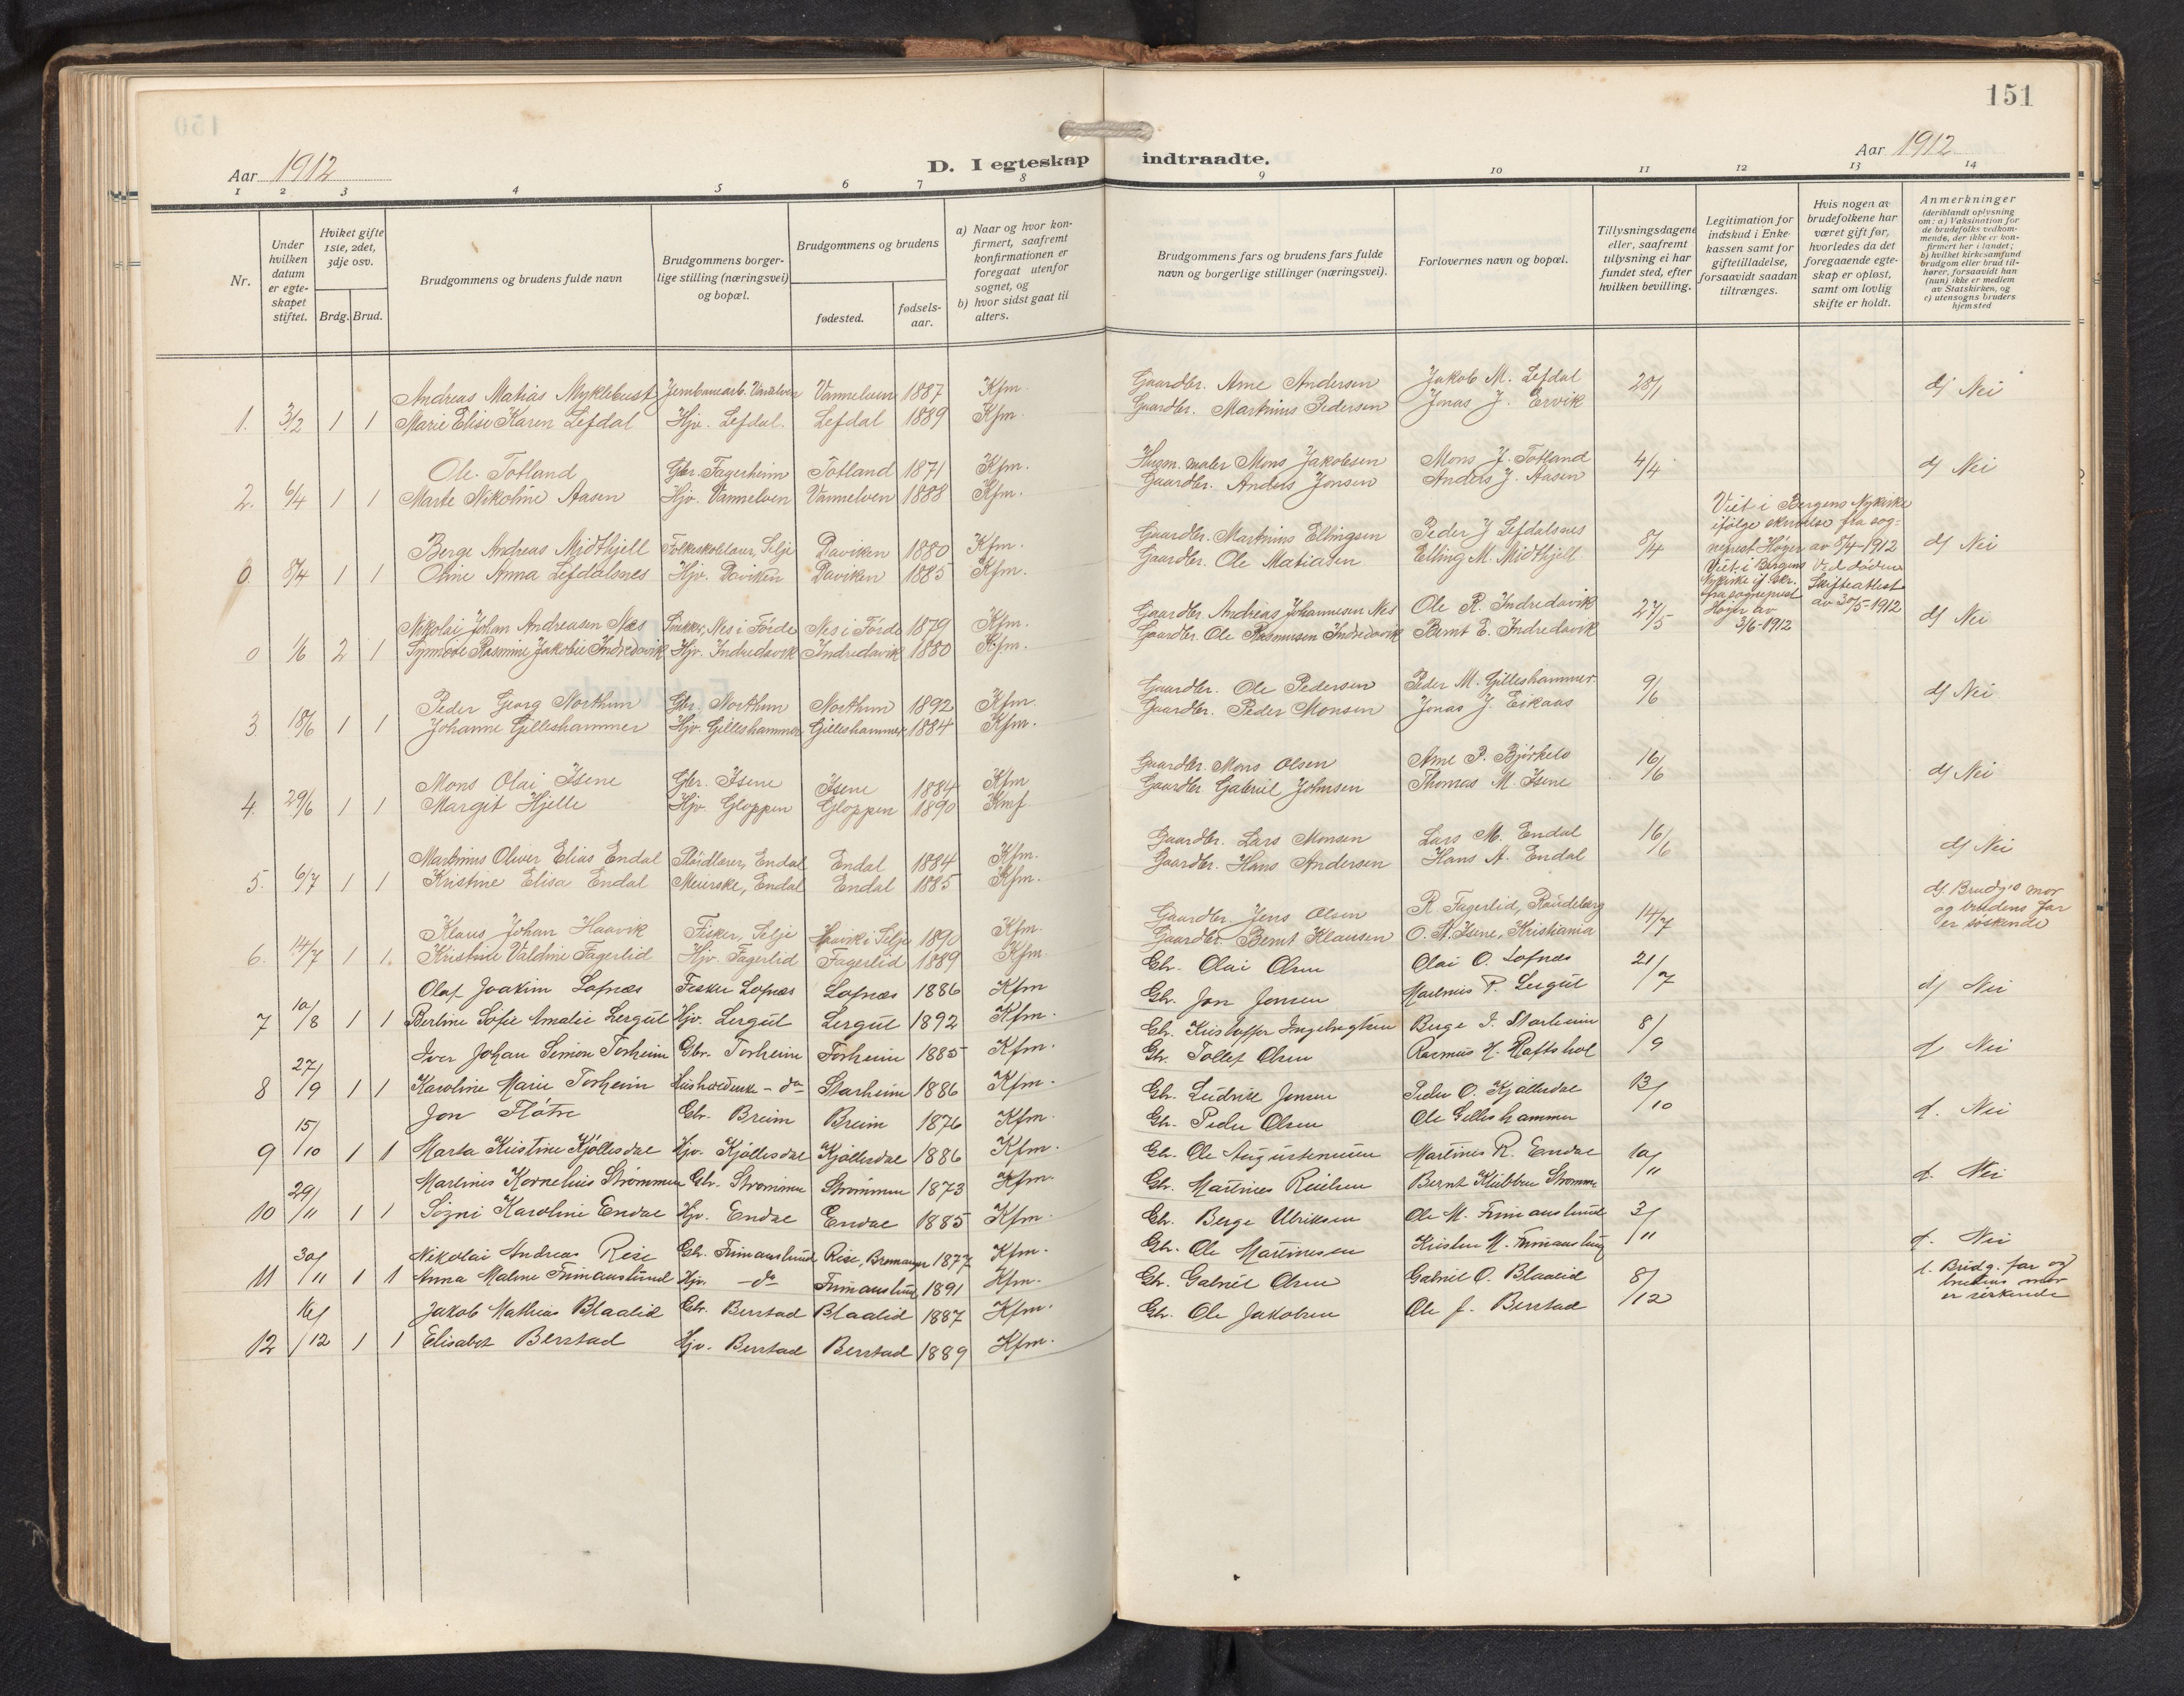 151
Aar 1912
D. I egteskap indtraadte.
Aar 1912
1 2 3 4 5 6 7 8 9 10 11 12 13 14
Nr.
Under hvilken datum er egteskapet stiftet.
Hviket gifte 1ste, 2det, 3dje osv.
Brdg. Brud.
Brudgommens og brudens fulde navn
Brudgommens borgerlige stilling (næringsvei) og bopæl.
Brudgommens og brudens
fødested.
fødselsaar.
a) Naar og hvor konfirmert, saafremt konfirmationen er foregaat utenfor sognet, og
b) hvor sidst gaat til alters.
Brudgommens fars og brudens fars fulde navn og borgerlige stillinger (næringsvei).
Forlovernes navn og bopæl.
Tillysningsdagene eller, saafremt tillysning ei har fundet sted, efter hvilken bevilling.
Legitimation for indskud i Enkekassen samt for giftetilladelse, forsaavidt saadan tiltrænges.
Hvis nogen av brudefolkene har været gift før, hvorledes da det foregaaende egteskap er opløst, samt om lovlig skifte er holdt.
Anmerkninger
(deriblandt oplysning om: a) Vaksination for de brudefolks vedkommende, der ikke er konfirmert her i landet; b) hvilket kirkesamfund brudgom eller brud tilhører, forsaavidt han (hun) ikke er medlem av Statskirken, og c) utensogns bruders hjemsted
Andreas Matias Myklebust Jernbanearb. Vannelven Vannelven 1887 Kfm. Gaardbr. Arne Andersen Jakob M. Lefdal 28/1 d) Nei
1. 3/2 1 1 Marie Elise Karen Lefdal Hjv. Lefdal. Lefdal 1889 Kfm. Gaardbr. Martinus Pedersen Jonas J. Ervik
Ole Totland Gbr. Fagerheim Totland 1871 Kfm. Husm. maler Mons Jakobsen Mons J. Totland 4/4 d) Nei
2. 6/4 1 1 Marte Nikoline Aasen Hjv. Vannelven Vannelven 1888 Kfm. Gaardbr. Anders Jonsen Anders J. Aasen
Berge Andreas Midthjell Folkeskolelærer, Selje Daviken 1880 Kfm. Gaardbr. Martinus Ellingsen Peder J Lefdalsnes 8/4 Viet i Bergens Nykirke ifølge skrivelse fra sogneprest Høyer av 8/4-1912 d) Nei
0. 8/4 1 1 Oline Anna Lefdalsnes Hjv. Daviken Daviken 1885 Kfm. Gaardbr. Ole Matiasen Elling M. Midthjell
Nikolai Johan Andreasen Nes Snekker, Nes i Førde Nes i Førde 1879 Kfm. Gaardbr Andreas Johannesen Nes Ole R. Indredavik 27/5 Viet i Bergens Nykirke if. skr. fra sogneprest Høyer av 3/6-1912 Ved døden Skifteattest av 30/5-1912 d) Nei
0 1/6 2 1 Synnøve Rasmine Jakobie Indredavik Hjv. Indredavik Indredavik 1880 Kfm. Gaardbr. Ole Rasmusen Indredavik Bernt E. Indredavik
Peder Georg Northun Gbr. Northun Northun 1892 Kfm. Gaardbr. Ole Pedersen Peder M. Gilleshammer 9/6 d) Nei
3. 18/6 1 1 Johanne Gilleshammer Hjv. Gilleshammer Gilleshammer 1884 Kfm. Gaardbr. Peder Monsen Jonas J. Eikaas
Mons Olai Isene Gbr. Isene Isene 1884 Kfm Gaardbr. Mons Olsen Arne P. Bjørkelo 16/6 d) Nei
4. 29/6 1 1 Margit Hjelle Hjv. Gloppen Gloppen 1890 Kmf Gaardbr. Gabriel Johnsen Thomas M. Isene
Martinus Oliver Elias Endal Sløidlærer, Endal Endal 1884 Kfm. Gaardbr. Lars Monsen Lars M. Endal 16/6 d) Nei
5. 6/7 1 1 Kristine Elisa Endal Meierske, Endal Endal 1885 Kfm. Gaardbr. Hans Andersen Hans A. Endal
Klaus Johan Haavik Fisker, Selje Haavik i Selje 1890 Kfm. Gaardbr. Jens Olsen R. Fagerlid, Raudeberg 14/7 d). Brudg's mor og brudens far er søskende
6. 14/7 1 1. Kristine Valdine Fagerlid Hjv. Fagerlid Fagerlid 1889 Kfm. Gaardbr. Bernt Klausen O. A. Isene, Kristiania
Olaf Joakim Lofnæs Fisker Lofnæs Lofnæs 1886 Kfm Gbr. Olai Olsen Olai O. Lofnæs 21/7 d) Nei
7 10/8 1 1 Berline Sofie Amalie Lergul Hjv. Lergul Lergul 1892 Kfm. Gbr. Jon Jonsen Martinus P. Lergul
Iver Johan Simon Torheim Gbr. Torheim Torheim 1885 Kfm. Gbr. Kristoffer Ingebrigtsen Berge I. Starheim 8/9 d. Nei
8 27/9 1 1 Karoline Marie Torheim - do Starheim 1886 Kfm. Gbr. Tollef Olsen Rasmus H. Haftshol
Jon Fløtre Gbr. Breim Breim 1876 Kfm. Gbr. Ludvik Jensen Peder O. Kjøllesdal 13/10 d. Nei
9 15/10 1 1 Marta Kristine Kjøllesdal Hjv. Kjøllesdal Kjøllesdal 1886 Kfm. Gbr. Peder Olsen Ole Gilleshammer
Martinus Kornelius Strømmen Gbr. Strømmen Strømmen 1873 Kfm. Gbr. Ole Augustinusen Martinus R. Endal 10/11 d. Nei
10 29/11 1 1 Signi Karoline Endal Hjv. Endal Endal 1885 Kfm. Gbr. Martinus Bernt Strømmen
Nikolai Andreas Rise Gbr. Frimanslund Rise, Bremanger 1877 Kfm. Gbr. Berge Ulriksen Ole M. Frimanslund 3/11 d. Nei
11 30/11 1 1 Anna Maline Frimanslund Hjv. - do Frimanslund 1891 Kfm. Gbr. Ole Martinusen Kristen M. Frimanslund
Jakob Mathias Blaalid Gbr. Berstad Blaalid 1887 Kfm. Gbr. Gabriel Olsen Gabriel O. Blaalid 8/12 d. Brudg. far og brudens mor er søskende
12 16/12 1 1 Elisabet Berstad Hjv. Berstad Berstad 1889 Kfm. Gbr. Ole Jakobsen Ole J. Berstad